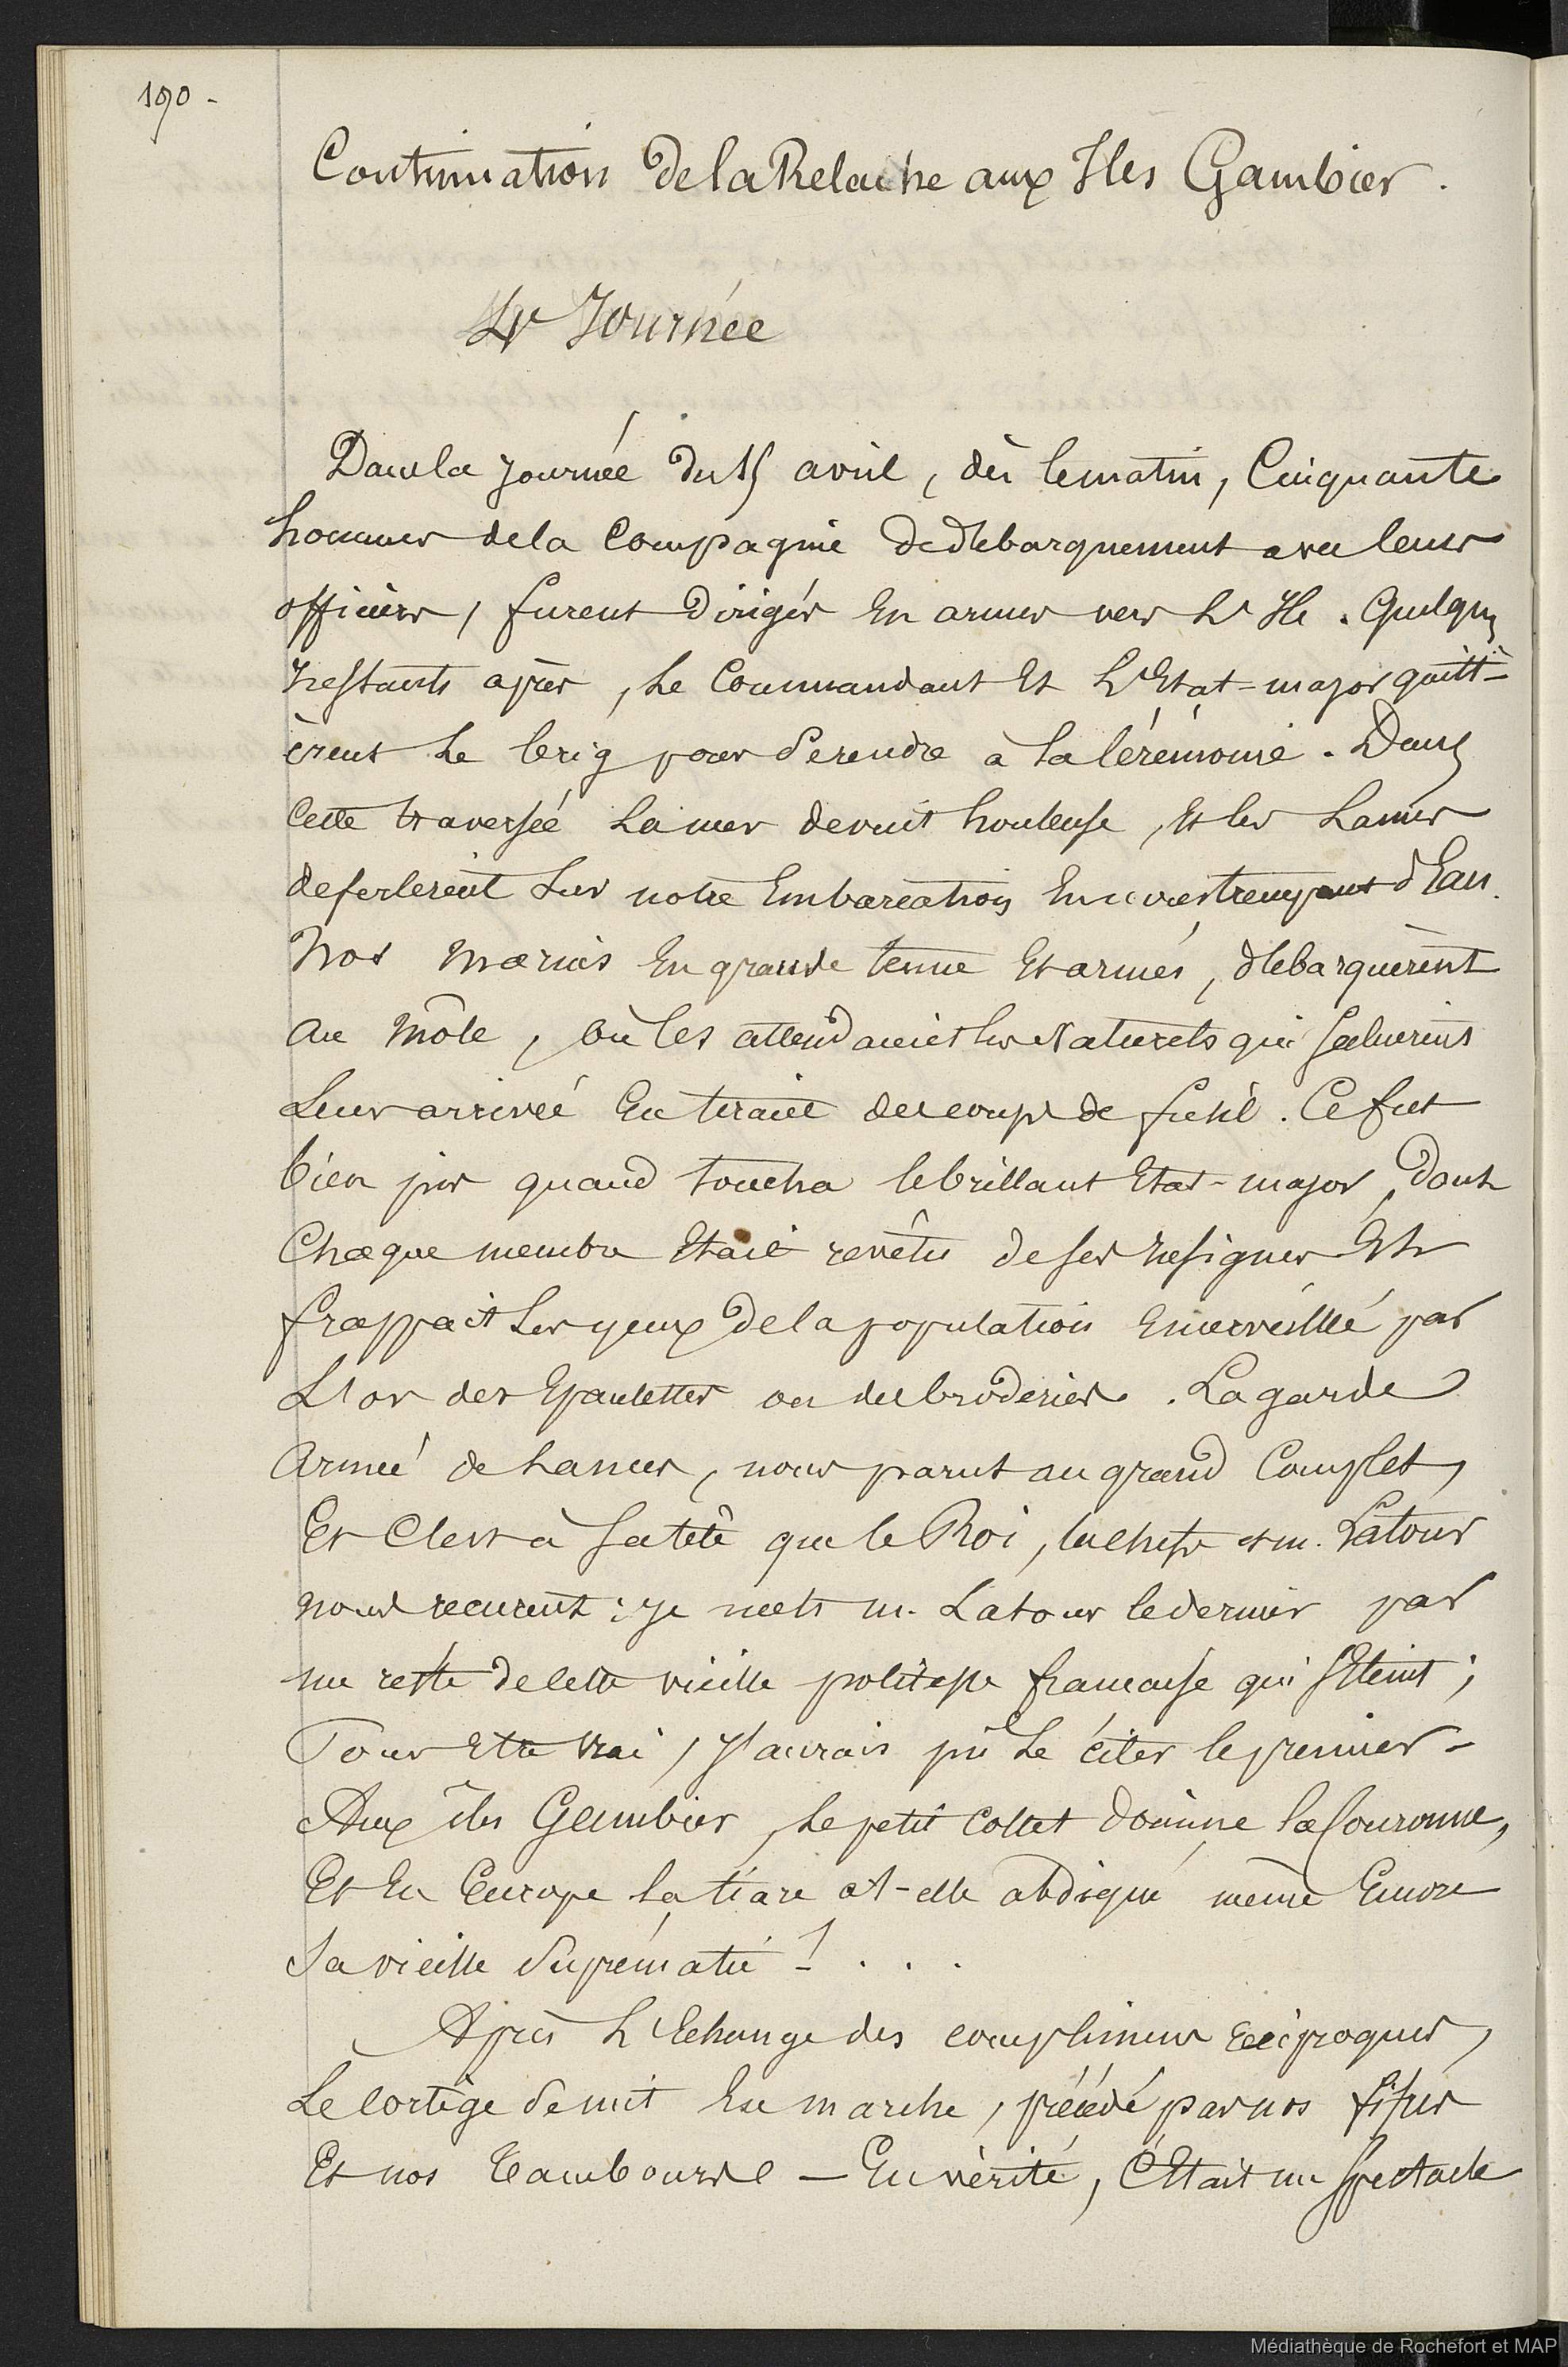 190 -
Continuation de la Relache aux Iles Gambier.
Journée
Dans la journée du 15 avril, dès le matin, Cinquante
hommes de la Compagnie de debarquement avec leurs
officiers, furent dirigés En armes vers L'Ile. Quelques
Instants après, Le Commandant Et L'Etat-major quitt-
èrent Le brig pour Se rendre à La Cérémonie. Dans
Cette traversée La mer devint houleuse, Et les Lames
deferlerent Sur notre Embarcation En nous trempant d'Eau.
Nos marins En grande tenue Et armés, débarquèrent
au Môle, où les attendaient les Naturels qui Saluèrent
Leur arrivée En tirant des coups de fusil. Ce fut
bien pis quand toucha le brillant Etat-major, dont
Chaque membre Etait revêtu de ses Insignes Et
frappait Les yeux de la population Emerveillée par
L'or des Epaulettes ou des broderies. La garde
Armée de Lances, nous parut au grand Complet,
Et C'est à Sa tête que le Roi, les chefs et m. Latour
nous recurent: Je mets m. Latour le dernier par
un reste de cette vieille politesse francaise qui S'Eteint;
Pour Etre Vrai, J'aurais pu Le citer le premier -
Aux îles Gambier, Le petit Collet domine La Couronne,
Et En Europe La tiare at-elle abdiqué même Encore
Sa vieille Suprématie! ...
Après L'Echange des complimens réciproques,
Le Cortége Se mit En marche, précédé par nos fifres
Et nos Tambours — En vérité, C'Etait un Spectacle
Médiathèque de Rochefort et MAP